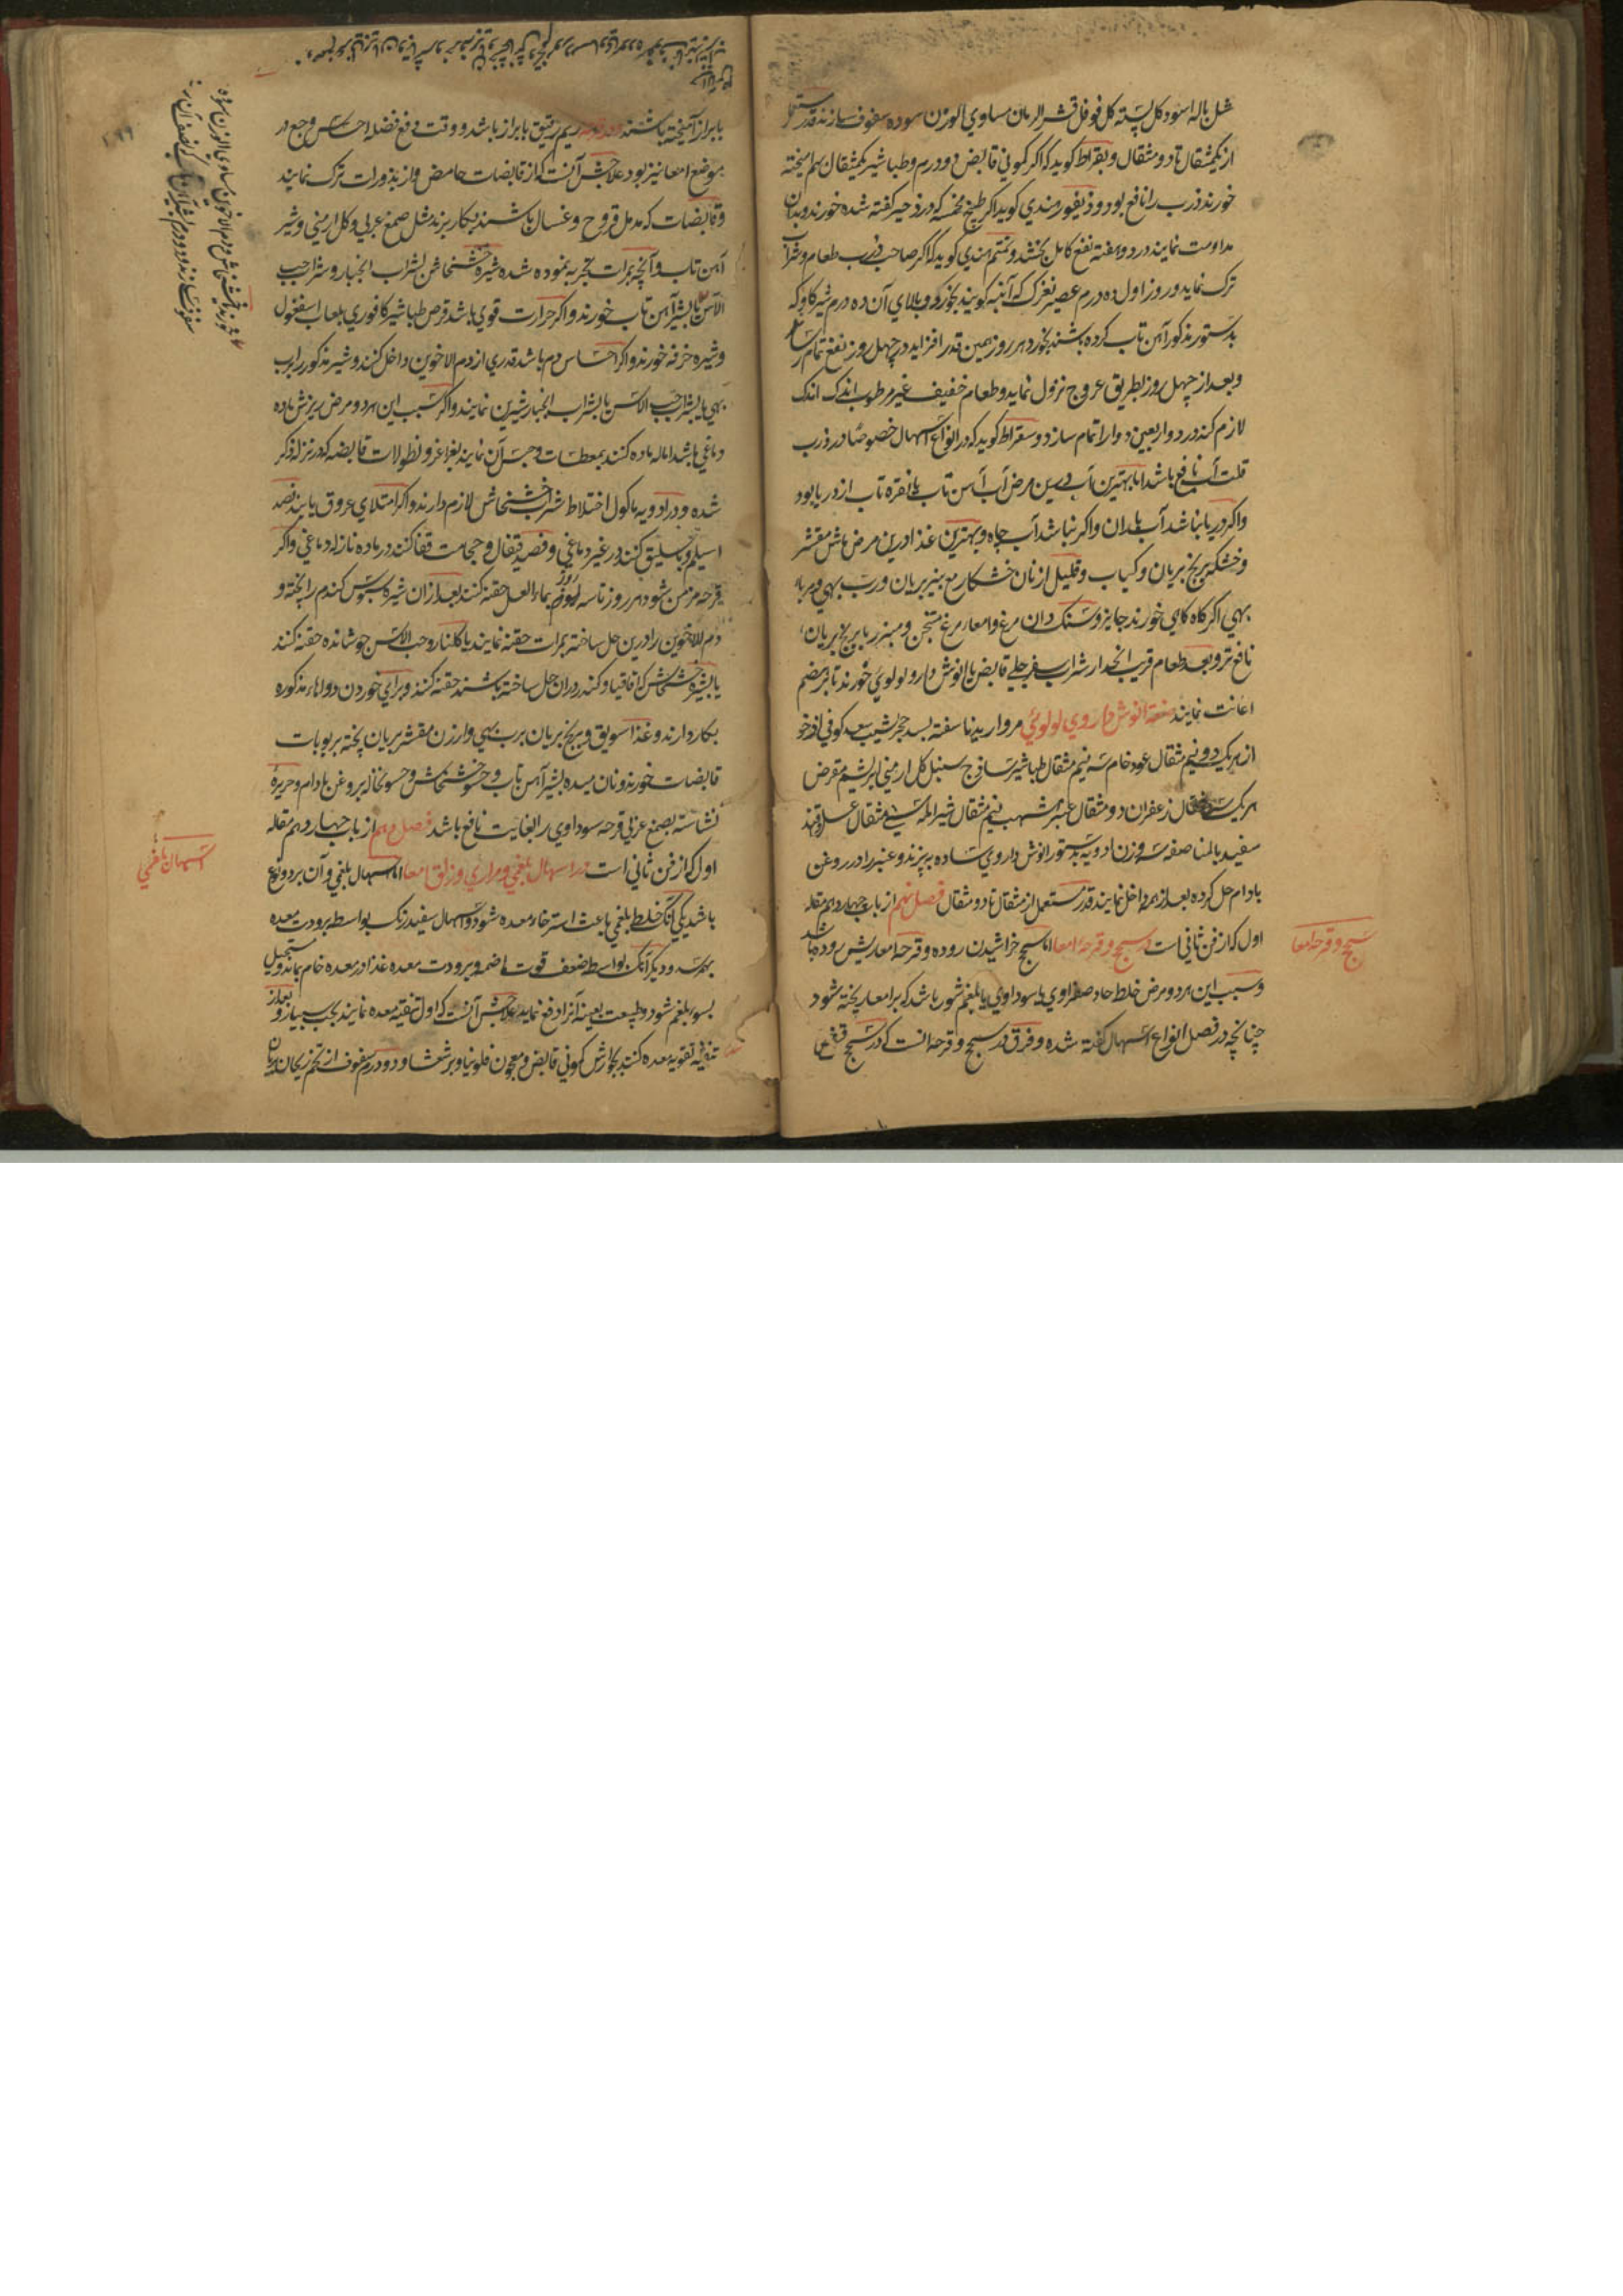 مثل هاله اسود کل پسته کل فوفل قشر الرمان مساوي الوزن سوده سفوف سازند قدر
از یکمثقال تا دو مثقال و بقراط کوید که اکر کموني قابض دو درم و طباشیر یکمثقال بهم امیخته
خورند ذرب را نافع بود و ذیفور هندي کوید اکر طبیخ مخمسه که در زحیر کفته شده خورند و بدان
مداومت نمایند در دو هفته نفع کامل بخشد و هندي کوید که اکر صاحب ذرب طعام و شراب
ترک نماید و روز اول ده درم عصیر نغزک که آنبه کویند بخورد و بالاي آن ده درم شیر کاو که
بدستور مذکور آهن تاب کرده باشند بخورد هر روز همین قدر افزاید در چهل روز نفع تمام
و بعد از چهل روز بطریق عروج نزول نماید و طعام خفیف غیر مرطوب اندک اندک
لازم کند در دو اربعین دوا را تمام سازد و سقراط کوید که در انواع اسهال خصوصا در ذرب
قلت آب نافع باشد اما بهترین آب درین مرض آب آهن تاب یا نقره تاب از دریا بود
و اکر دریا نباشد آب باران و اکر نباشد آب چاه و بهترین غذا درین مرض ماش مقشر
و خشکه برنج بریان و کباب و قلیل از نان خشکار مع پنیر بریان و رب بهي و مربا
بهي اکر کاه کاهي خورند جایز و سنک دان مرغ و امعاء مرغ و برنج بریان
نافع تر و بعد طعام قریب انحدار شراب سفرجلي قابض یا انوش دارو لولوئي خورند تا بر هضم
اعانت نمایند صفة انوش داروي لولوئي مروارید ناسفته بسد حجر یشب سعد کوفي اذخر
از هر یک دو نیم مثقال عود خام سه نیم مثقال طباشیر ساذج سنبل کل ارمني ابریشم مقرض
هر یک مثقال زعفران دو مثقال عنبر اشهب نیم مثقال شیر امله سي مثقال عسل و قند
سفید بالمناصفه سه وزن ادویه بدستور انوش داروي ساده بپزند و عنبر را در روغن
بادام حل کرده بعد از همه داخل نمایند قدر مستعمل از مثقال تا دو مثقال فصل نهم از باب چهاردهم مقاله
اول که از فن ثاني است در سحج و قرحه امعا اما سحج خراشیدن روده و قرحه امعا ریش روده باشد
و سبب این هر دو مرض خلط حاد صفراوي یا سوداوي یا بلغم شور باشد که بر امعا ریخته شود
چنانچه در فصل انواع اسهال کفته شده و فرق در سحج و قرحه انست که در سحج
سحج و قرحه امعا
با براز آمیخته باشند و در قرحه ریم رقیق با براز باشد و وقت دفع فضله احساس وجع در
موضع امعا نیز بود علاجش آنست که از قابضات حامض و از بذورات ترک نمایند
و قابضات که مدمل قروح و غسال باشند بکار برند مثل صمغ عربي و کل ارمني و شیر
آهن تاب و آنچه بمرات تجربه نموده شده شیره خشخاش بشراب انجبار و شراب حب
الآس با شیر آهن تاب خورند و اکر حرارت قوي باشد قرص طباشیر کافوري بلعاب اسفغول
و شیره خرفه خورند و اکر احساس دم باشد قدري از دم الاخوین داخل کنند و شیر مذکور را برب
بهي یا بشراب حب الاس یا بشراب انجبار شیرین نمایند و اکر سبب این هر دو مرض ریزش ماده
دماغي باشد اماله ماده کنند بمعطسات و حبس آن نمایند بغراغر و نطولات قابضه که در نزله ذکر
شده و در ادویه ماکول اختلاط شراب خشخاش لازم دارند و اکر امتلاي عروق یابند فصد
اسیلم و باسلیق کنند در غیر دماغي و فصد قیفال و حجامت قفا کنند در ماده نازله دماغي و اکر
قرحه مزمن شود هر روز تا سه روز بماء العسل حقنه کنند بعد از ان شیره سبوس کندم را پخته و
دم الاخوین را درین حل ساخته بمرات حقنه نمایند یا کلنار و حب الاس جوشانده حقنه کنند
یا بشیره خشخاش که اقاقیا و کندر دران حل ساخته باشند حقنه کنند و براي خوردن دواهاء مذکوره
بکار دارند و غذا سویق و برنج بریان برب بهي و ارزن مقشر بریان پخته بربوبات
قابضات خورند و نان میده بشیر آهن تاب و حسو خشخاش و حسو نخاله بروغن بادام و حریره
نشاسته بصمغ عربي قرحه سوداوي را بغایت نافع باشد فصل دهم از باب چهاردهم مقاله
اول که از فن ثاني است در اسهال بلغمي و مراري و زلق امعا اما اسهال بلغمي و آن بر دو نوع
باشد یکي آنکه خلط بلغمي باعث استرخاء معده شود و اسهال سفید رنک بواسطه برودت معده
بهم رسد و دیکر آنکه بواسطه ضعف قوت هاضمه و برودت معده غذا در معده خام بماند و مستحیل
بسوء بلغم شود و طبیعت بعینه آنرا دفع نماید علاجش آنست که اول تنقیه معده نمایند بحب و بعد از
تنقیه تقویه معده کنند بجوارش کموني قابض و معجون فلونیا و برشعشا و دو درم سفوف از تخم ریحان
اسهال بلغمي
۱۹۹